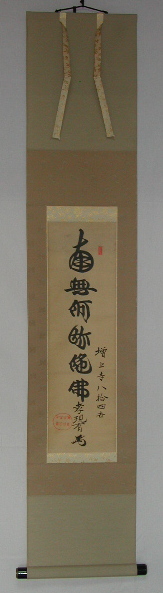 南無阿弥陀佛
増上寺八拾四世
孝現有